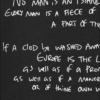 NO MAN IS AN ISLAND
EVERY MAN IS A PIECE OF
A PART OF THE
IF A CLOD BE WASHED AWAY
EUROPE IS THE L
AS WELL AS IF A PRO
AS WELL AS IF A MANOR
OR OF THINE OWN W